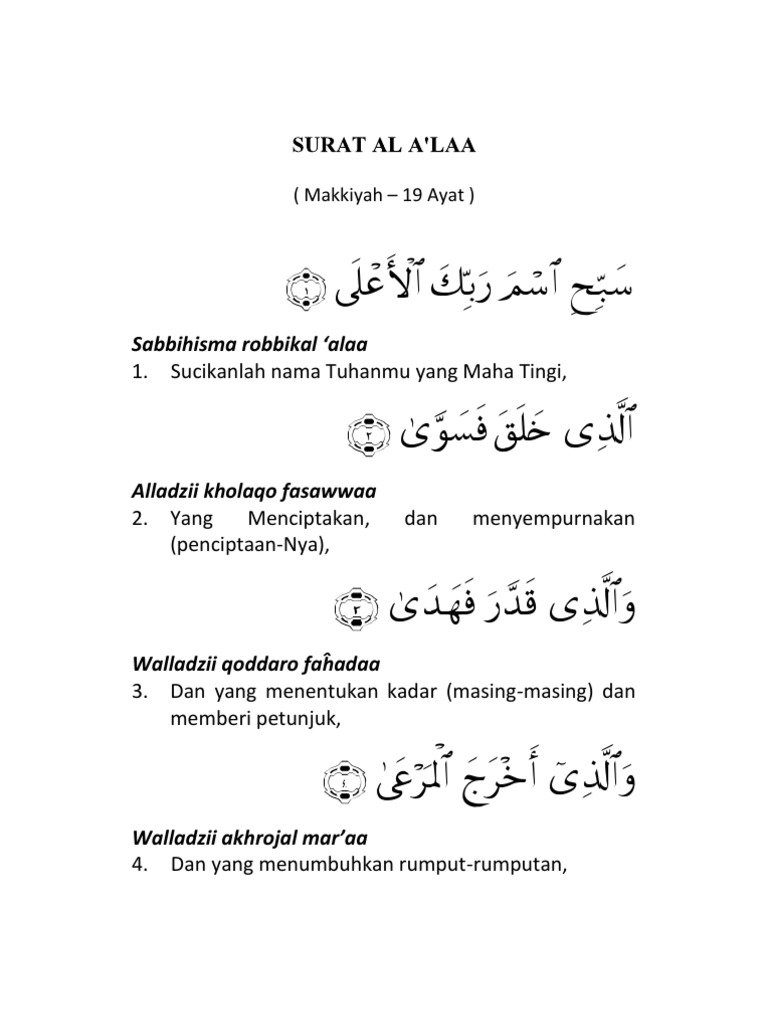 SURAT AL A'LAA
( Makkiyah – 19 Ayat )
سَبِّحِ ٱسْمَ رَبِّكَ ٱلْأَعْلَى ١
Sabbihisma robbikal ‘alaa
1. Sucikanlah nama Tuhanmu yang Maha Tingi,
ٱلَّذِى خَلَقَ فَسَوَّىٰ ٢
Alladzii kholaqo fasawwaa
2. Yang Menciptakan, dan menyempurnakan
(penciptaan-Nya),
وَٱلَّذِى قَدَّرَ فَهَدَىٰ ٣
Walladzii qoddaro faĥadaa
3. Dan yang menentukan kadar (masing-masing) dan
memberi petunjuk,
وَٱلَّذِىٓ أَخْرَجَ ٱلْمَرْعَىٰ ٤
Walladzii akhrojal mar’aa
4. Dan yang menumbuhkan rumput-rumputan,